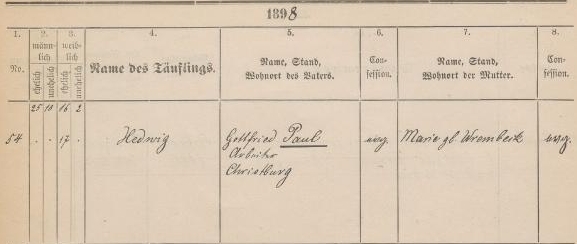 1898
1. 2. 3. 4. 5. 6. 7. 8.
No. männ-lich weib-lich Name des Täuflings. Name, Stand, Wohnort des Vaters. Con-fession. Name, Stand, Wohnort der Mutter. Con-fession.
ehelich unehelich ehelich unehelich
25 10 16 2
54 . . 17 . Hedwig Gottfried Paul evg. Marie gb. Wrembeck evg.
Arbeiter
Christburg